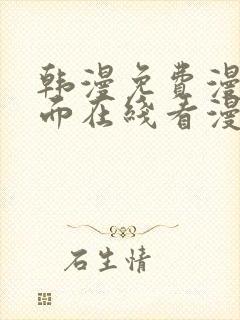 韩漫免费漫
而在线看漫
石生情